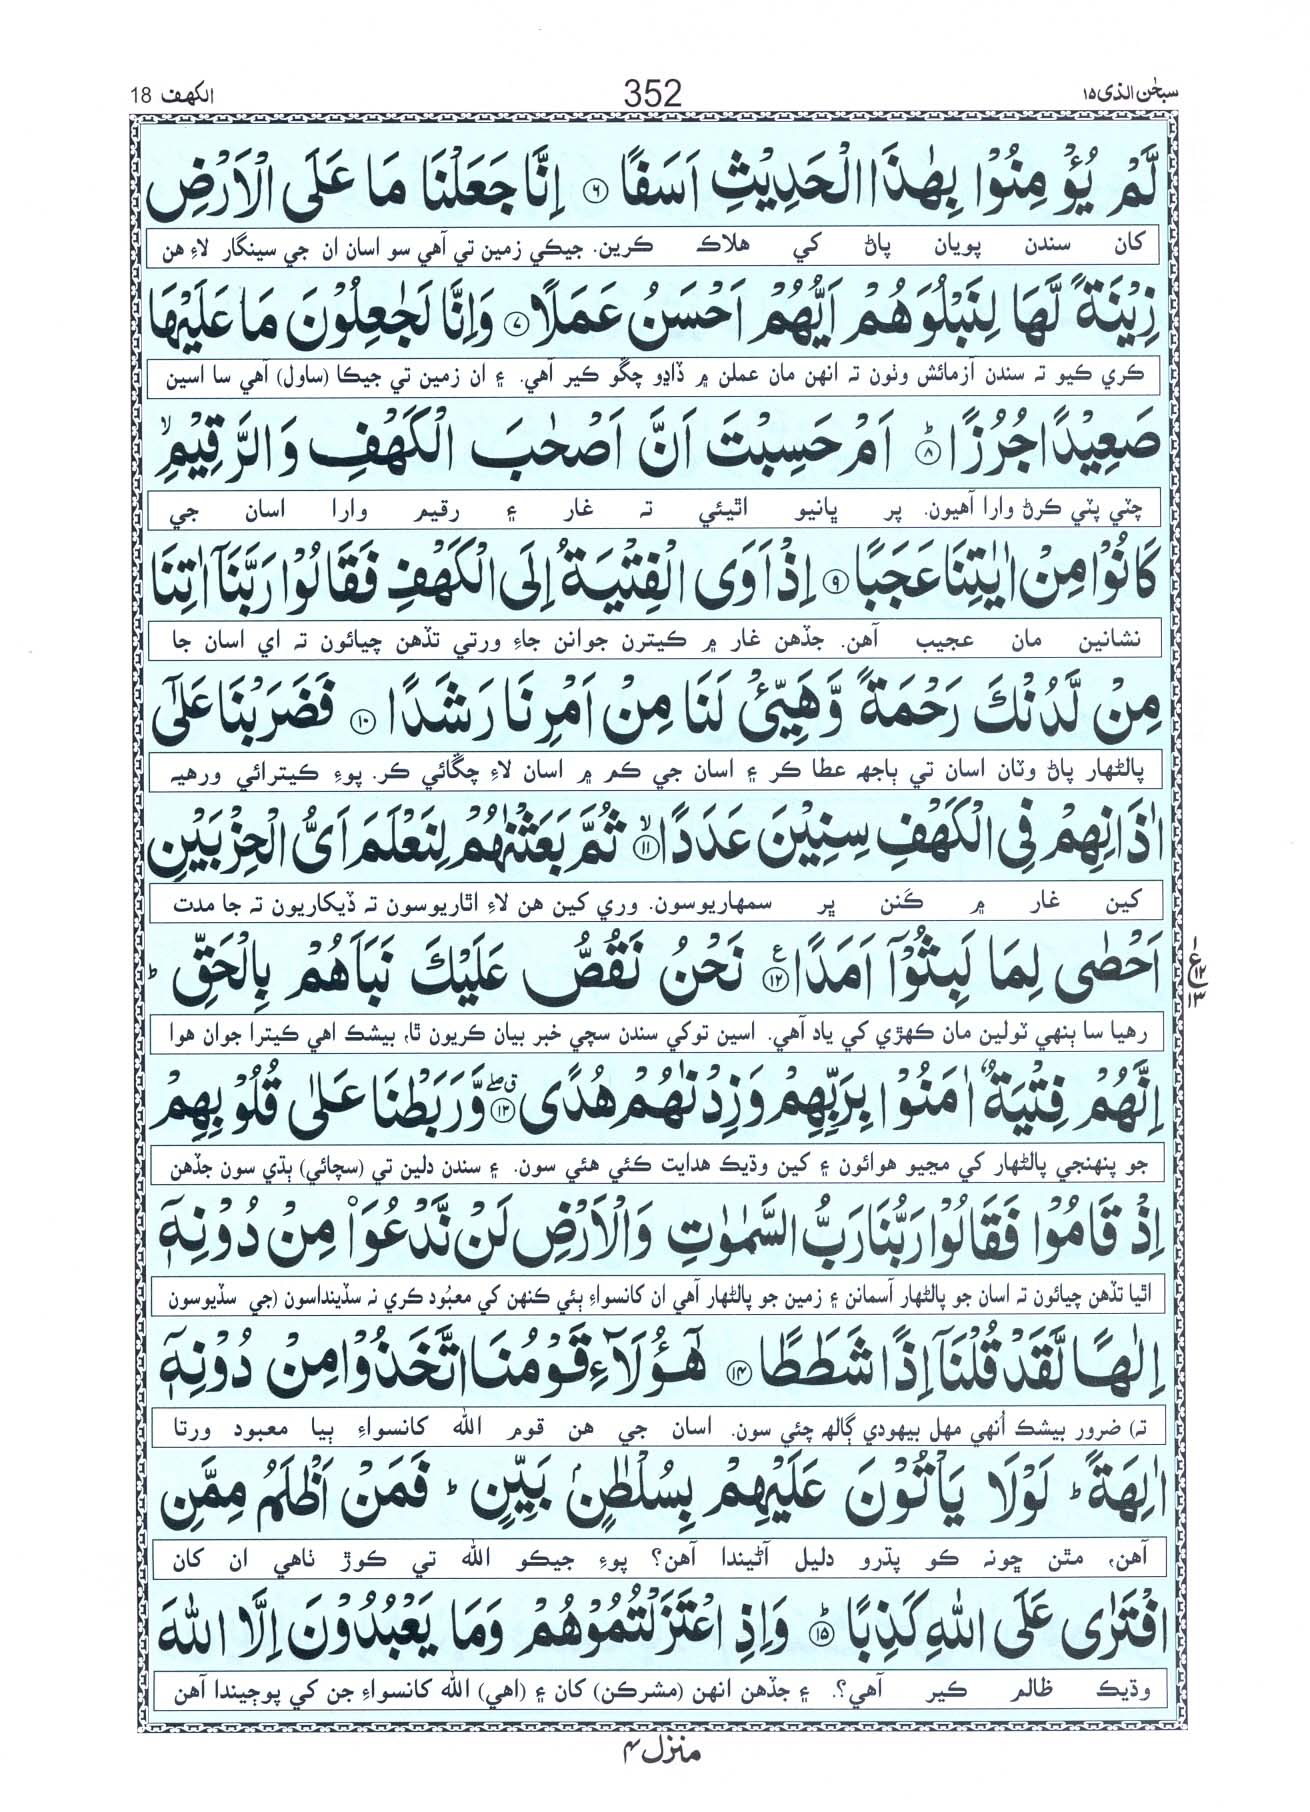 سبحٰن الذی ۱۵
352
الکهف 18
لَّمْ يُؤْمِنُوْا بِهٰذَا الْحَدِيْثِ اَسَفًا ۶ اِنَّا جَعَلْنَا مَا عَلَى الْاَرْضِ
کان سندن پويان پاڻ کي هلاڪ ڪرين. جيڪي زمين تي آهي سو اسان ان جي سينگار لاءِ هن
زِيْنَةً لَّهَا لِنَبْلُوَهُمْ اَيُّهُمْ اَحْسَنُ عَمَلًا ۷ وَاِنَّا لَجٰعِلُوْنَ مَا عَلَيْهَا
ڪري ڪيو ته سندن آزمائش وٺون ته انهن مان عملن ۾ ڏاڍو چڱو ڪير آهي. ۽ ان زمين تي جيڪا (ساول) آهي سا اسين
صَعِيْدًا جُرُزًا ۸ؕ اَمْ حَسِبْتَ اَنَّ اَصْحٰبَ الْكَهْفِ وَالرَّقِيْمِۙ
چٽي پٽي ڪرڻ وارا آهيون. پر ڀانيو اٿيئي ته غار ۽ رقيم وارا اسان جي
كَانُوْا مِنْ اٰيٰتِنَا عَجَبًا ۹ اِذْ اَوَى الْفِتْيَةُ اِلَى الْكَهْفِ فَقَالُوْا رَبَّنَاۤ اٰتِنَا
نشانين مان عجيب آهن. جڏهن غار ۾ ڪيترن جوانن جاءِ ورتي تڏهن چيائون ته اي اسان جا
مِنْ لَّدُنْكَ رَحْمَةً وَّهَيِّئْ لَنَا مِنْ اَمْرِنَا رَشَدًا ۱۰ فَضَرَبْنَا عَلٰۤى
پالڻهار پاڻ وٽان اسان تي ٻاجهه عطا ڪر ۽ اسان جي ڪم ۾ اسان لاءِ چڱائي ڪر. پوءِ ڪيترائي ورهيه
اٰذَانِهِمْ فِى الْكَهْفِ سِنِيْنَ عَدَدًا ۱۱ۙ ثُمَّ بَعَثْنٰهُمْ لِنَعْلَمَ اَىُّ الْحِزْبَيْنِ
کين غار ۾ ڪَنن ڀر سمهاريوسون. وري کين هن لاءِ اٿاريوسون ته ڏيکاريون ته جا مدت
اَحْصٰى لِمَا لَبِثُوْۤا اَمَدًا ۱۲ع نَحْنُ نَقُصُّ عَلَيْكَ نَبَاَهُمْ بِالْحَقِّؕ
ع ۱۲ ۱۳
رهيا سا ٻنهي ٽولين مان ڪهڙي کي ياد آهي. اسين توکي سندن سچي خبر بيان ڪريون ٿا، بيشڪ اهي ڪيترا جوان هوا
اِنَّهُمْ فِتْيَةٌ اٰمَنُوْا بِرَبِّهِمْ وَزِدْنٰهُمْ هُدًى ۱۳ۖق وَّرَبَطْنَا عَلٰى قُلُوْبِهِمْ
جو پنهنجي پالڻهار کي مڃيو هوائون ۽ کين وڌيڪ هدايت ڪئي هئي سون. ۽ سندن دلين تي (سچائي) ٻڌي سون جڏهن
اِذْ قَامُوْا فَقَالُوْا رَبُّنَا رَبُّ السَّمٰوٰتِ وَالْاَرْضِ لَنْ نَّدْعُوَا۟ مِنْ دُوْنِهٖۤ
اٿيا تڏهن چيائون ته اسان جو پالڻهار آسمانن ۽ زمين جو پالڻهار آهي ان کانسواءِ ٻئي ڪنهن کي معبُود ڪري نه سڏينداسون (جي سڏيوسون
اِلٰهًا لَّقَدْ قُلْنَاۤ اِذًا شَطَطًا ۱۴ هٰۤؤُلَآءِ قَوْمُنَا اتَّخَذُوْا مِنْ دُوْنِهٖۤ
ته) ضرور بيشڪ اُنهي مهل بيهودي ڳالهه چئي سون. اسان جي هن قوم الله کانسواءِ ٻيا معبود ورتا
اٰلِهَةًؕ لَوْلَا يَاْتُوْنَ عَلَيْهِمْ بِسُلْطٰنٍۭ بَيِّنٍؕ فَمَنْ اَظْلَمُ مِمَّنِ
آهن، مٿن ڇونه ڪو پڌرو دليل آڻيندا آهن؟ پوءِ جيڪو الله تي ڪوڙ ٺاهي ان کان
افْتَرٰى عَلَى اللّٰهِ كَذِبًا ۱۵ؕ وَاِذِ اعْتَزَلْتُمُوْهُمْ وَمَا يَعْبُدُوْنَ اِلَّا اللّٰهَ
وڌيڪ ظالم ڪير آهي؟. ۽ جڏهن انهن (مشرڪن) کان ۽ (اهي) الله کانسواءِ جن کي پوڄيندا آهن
منزل ۴